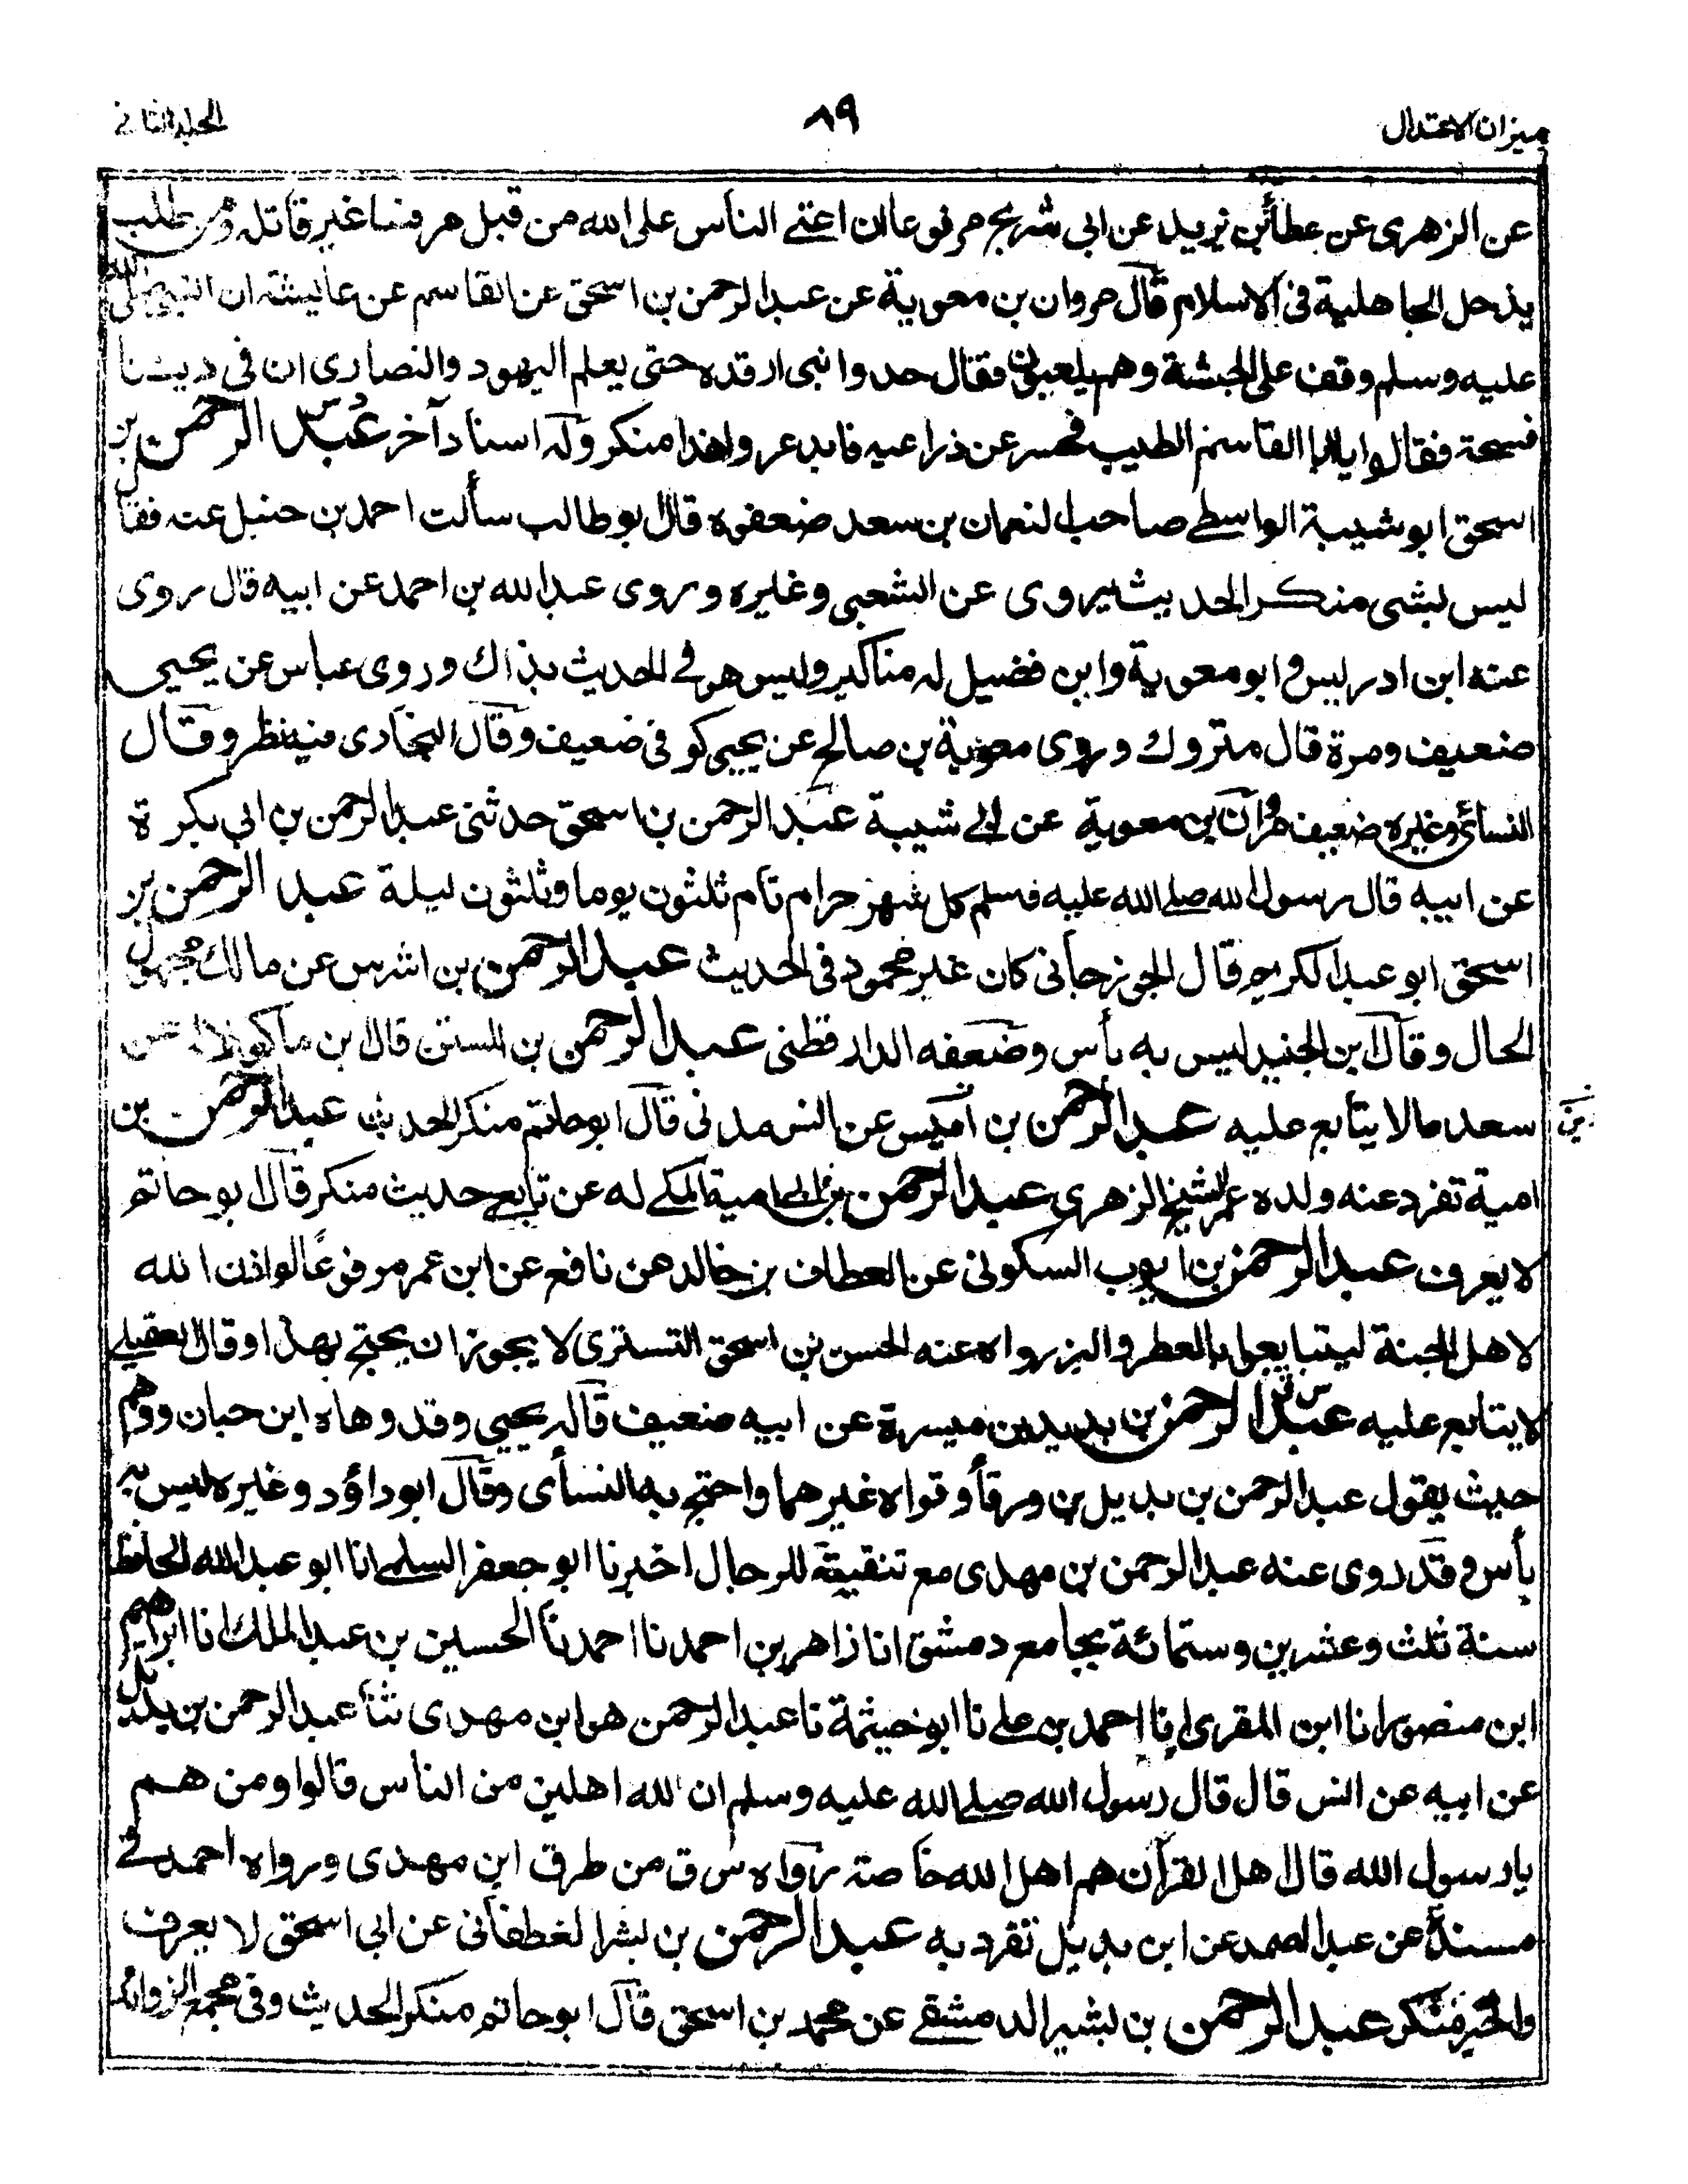 ميزان الاعتدال
٨٩
الجلد الثاني
عن الزهرى عن عطاء بن يزيد عن ابي شريح مرفوعا ان اعتے الناس على الله من قبل هرفنا غير قاتله ومن طلب
بذحل الجاهلية فى الاسلام قال مروان بن معوية عن عبد الرحمن بن اسحق عن القاسم عن عايشة ان النبي صلى الله
عليه وسلم وقف على الحبشة وهم يلعبون فقال حدوا نبى ارفده حتى يعلم اليهود والنصارى ان فى ديننا
فسحة فقالوا يا ابا القاسم الطيب فحسر عن ذراعيه فابد عروا هذا منكر وله اسناد آخر عبد الرحمن بن
اسحق ابو شيبة الواسطے صاحب لنعمان بن سعد ضعفوه قال ابو طالب سألت احمد بن حنبل عنه فقال
ليس بشى منكر الحديث يروى عن الشعبى وغيره وروى عبد الله بن احمد عن ابيه قال روى
عنه ابن ادريس و ابو معوية وابن فضيل له مناكير وليس هو فے الحديث بذاك وروى عباس عن يحيى
ضعيف ومرة قال متروك وروى معوية بن صالح عن يحيى كوفى ضعيف وقال البخارى فيه نظر وقال
النسائى وغيره ضعيف مروان بن معوية عن ابے شيبة عبد الرحمن بن اسحق حدثنى عبد الرحمن بن ابي بكرة
عن ابيه قال رسول الله صلے الله عليه وسلم كل شهر حرام تام ثلثون يوما وثلثون ليلة عبد الرحمن بن
اسحق ابو عبد الكريم قال الجوزجانى كان غير محمود فى الحديث عبد الرحمن بن اشرس عن مالك مجهول
الحال وقال ابن الجنيد ليس به بأس وضعفه الدارقطنى عبد الرحمن بن المستن قال ابن ماكولا
سعد مالا يتابع عليه عبد الرحمن بن أميس عن انس مدنى قال ابو حاتم منكر الحديث عبد الرحمن بن
امية تفرد عنه ولده عمر شيخ الزهرى عبد الرحمن بن ابے امية المكے له عن تابعے حديث منكر قال ابو حاتم
لا يعرف عبد الرحمن بن ايوب السكونى عن العطاف بن خالد عن نافع عن ابن عمر مرفوعًا لو اذن الله
لاهل الجنة ليتبايعوا بالعطر والبز رواه عنه الحسن بن اسحق التسترى لا يجوز ان يحتج بهذا وقال العقيلے
لا يتابع عليه عبد الرحمن بن بديل بن ميسرة عن ابيه ضعيف قاله يحيى وقد وهاه ابن حبان ووهم
حيث يقول عبد الرحمن بن بديل بن ورقأ وقواه غيرهما واحتج به النسأى وقال ابو داؤد وغيره ليس به
بأس وقد روى عنه عبد الرحمن بن مهدى مع تنقيته للرجال اخبرنا ابو جعفر السلمے انا ابو عبد الله الحافظ
سنة ثلث وعشرين وستمائة بجامع دمشق انا زاهر بن احمد نا احمد نا الحسين بن عبد الملك انا ابراهيم
ابن منصور انا ابن المقرى انا احمد بن علے نا ابو خيثمة نا عبد الرحمن هو ابن مهدى ثنا عبد الرحمن بن بديل
عن ابيه عن انس قال قال رسول الله صلے الله عليه وسلم ان لله اهلين من الناس قالوا ومن هم
يا رسول الله قال هل القرآن هم اهل الله خاصته رواه س ق من طرق ابن مهدى ورواه احمد فے
مسنده عن عبد الصمد عن ابن بديل تفرد به عبد الرحمن بن بشر الغطفانى عن ابي اسحق لا يعرف
والخبر منكر عبد الرحمن بن بشير الدمشقے عن محمد بن اسحق قال ابو حاتم منكر الحديث وفى مجمع الزوائد